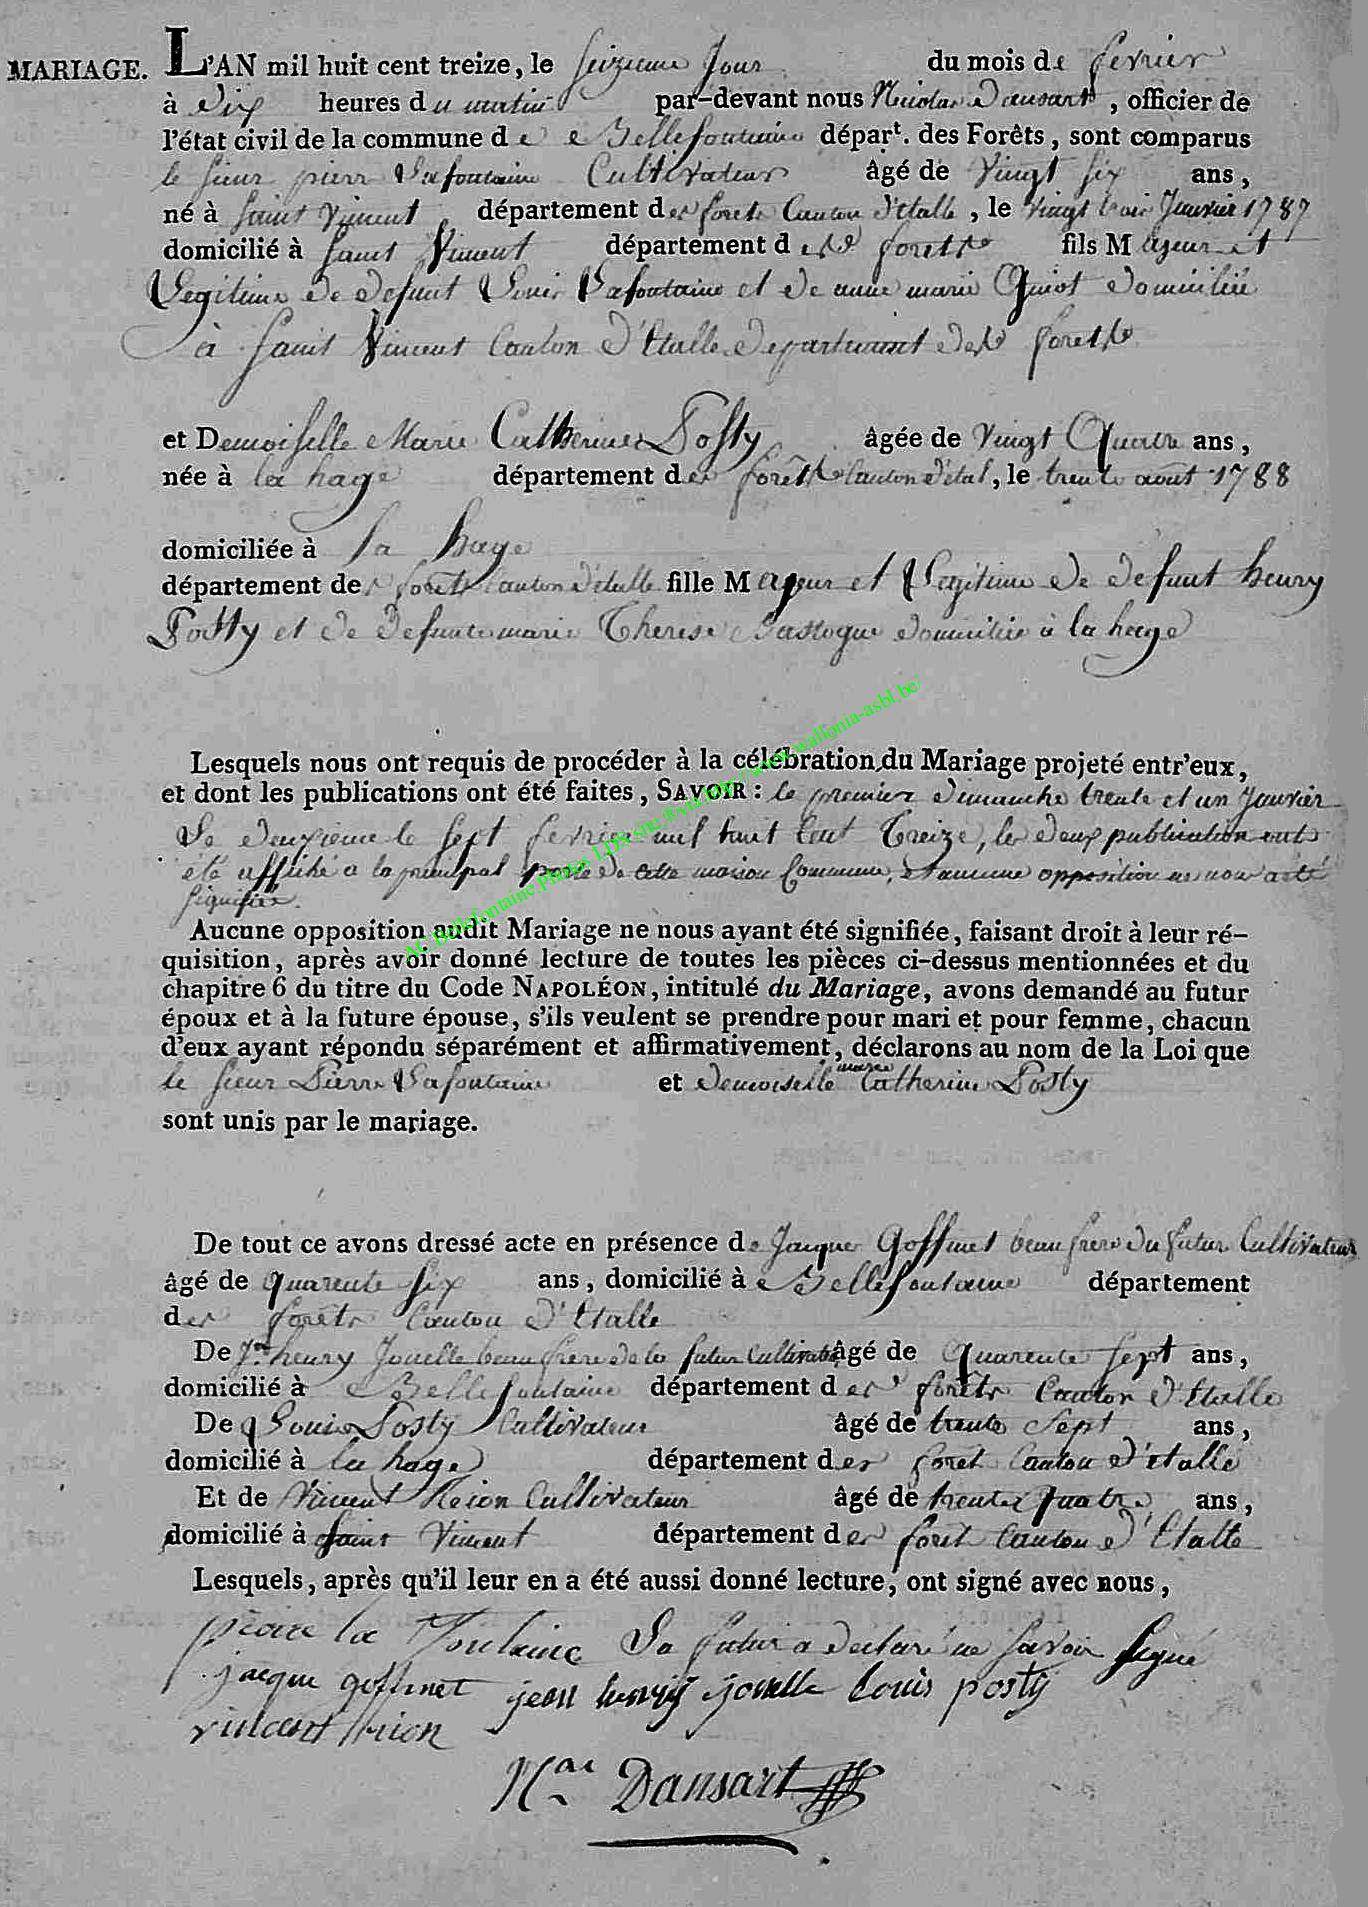 MARIAGE. L'AN mil huit cent treize, le seizieme Jour du mois de fevrier
à Dix heures du matin par-devant nous Nicolas Dansart, officier de
l'état civil de la commune de Bellefontaine départ. des Forêts, sont comparus
le sieur pierre Lafontaine Cultivateur âgé de Vingt six ans,
né à saint Vincent département des forets Canton d'Etalle, le Vingt trois Janvier 1787
domicilié à saint Vincent département des forets fils Majeur et
Legitime de defunt Louis Lafontaine et de anne marie domiciliée
à saint Vincent Canton d'Etalle departement des forets
et Demoiselle Marie Catherine Posty âgée de Vingt Quatre ans,
née à la hage département des forêts Canton d'etal, le trente aout 1788
domiciliée à la hage
département des forets Canton d'etalle fille Majeur et Legitime de defunt henry
Posty et de defunte marie Therese domiciliée à la hage
Lesquels nous ont requis de procéder à la célébration du Mariage projeté entr'eux,
et dont les publications ont été faites, SAVOIR : le premier dimanche trente et un Janvier
Le deuxieme le sept fevrier mil huit Cent Treize, les deux publication ont
été affiché a la principal porte de Cette maison Commune, et aucune opposition ne nous a été
signifiée.
Aucune opposition audit Mariage ne nous ayant été signifiée, faisant droit à leur ré-
quisition, après avoir donné lecture de toutes les pièces ci-dessus mentionnées et du
chapitre 6 du titre du Code NAPOLÉON, intitulé du Mariage, avons demandé au futur
époux et à la future épouse, s'ils veulent se prendre pour mari et pour femme, chacun
d'eux ayant répondu séparément et affirmativement, déclarons au nom de la Loi que
le sieur Pierre Lafontaine et demoiselle marie Catherine Posty
sont unis par le mariage.
AC Bellefontaine Photos LDS site http://www.wallonia-asbl.be/
De tout ce avons dressé acte en présence de Jacque Goffinet beau frere du futur Cultivateur
âgé de quarente six ans, domicilié à Bellefontaine département
des forets Canton d'Etalle
De Jn henry Jouelle beau frere de la futur Cultivateur âgé de Quarente sept ans,
domicilié à Bellefontaine département des forêts Canton d'Etalle
De Louis Posty Cultivateur âgé de trente sept ans,
domicilié à la hage département des foret Canton d'etalle
Et de Vincent Cultivateur âgé de trente quatre ans,
domicilié à saint Vincent département des foret Canton d'Etalle
Lesquels, après qu'il leur en a été aussi donné lecture, ont signé avec nous,
pierre la fontaine La futur a declaré ne savoir signé
jacque goffinet jean henry jouelle Louis posty
vincent
Nas Dansart